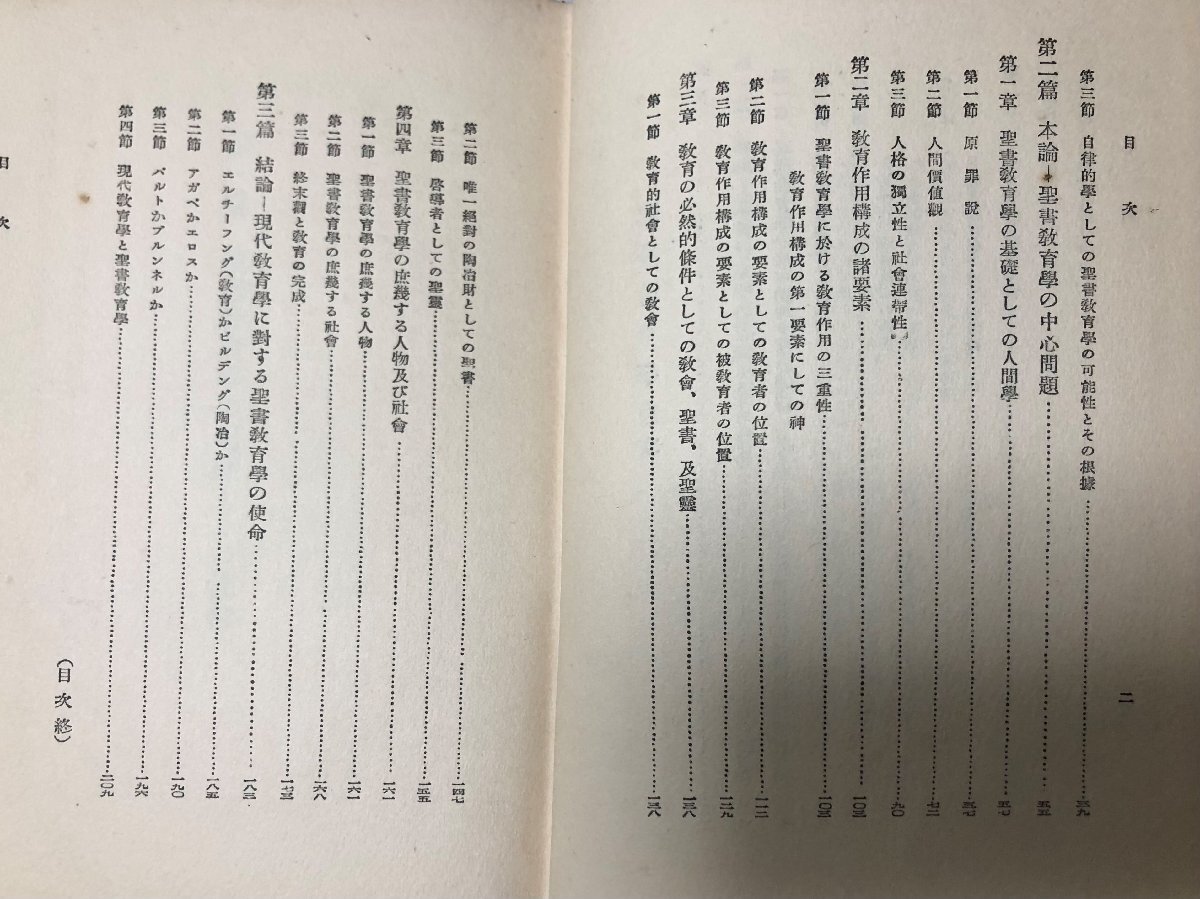 目次
二
第三節 自律的學としての聖書敎育學の可能性とその根據……三九
第二篇 本論—聖書敎育學の中心問題……五五
第一章 聖書敎育學の基礎としての人間學……五七
第一節 原罪說……五七
第二節 人間價値觀……七二
第三節 人格の獨立性と社會連帶性……九〇
第二章 敎育作用構成の諸要素……一〇三
第一節 聖書敎育學に於ける敎育作用の三重性……一〇三
敎育作用構成の第一要素にしての神
第二節 敎育作用構成の要素としての敎育者の位置……一一二
第三節 敎育作用構成の要素としての被敎育者の位置……一二九
第三章 敎育の必然的條件としての敎會、聖書、及聖靈……一三八
第一節 敎育的社會としての敎會……一三八
第二節 唯一絕對の陶冶財としての聖書……一四七
第三節 啓導者としての聖靈……一五五
第四章 聖書敎育學の庶幾する人物及び社會……一六一
第一節 聖書敎育學の庶幾する人物……一六一
第二節 聖書敎育學の庶幾する社會……一六八
第三節 終末觀と敎育の完成……一七三
第三篇 結論—現代敎育學に對する聖書敎育學の使命……一八三
第一節 エルチーフング(敎育)かビルデング(陶冶)か……一八五
第二節 アガペかエロスか……一九〇
第三節 バルトかブルンネルか……一九六
第四節 現代敎育學と聖書敎育學……二〇九
(目次終)
目次